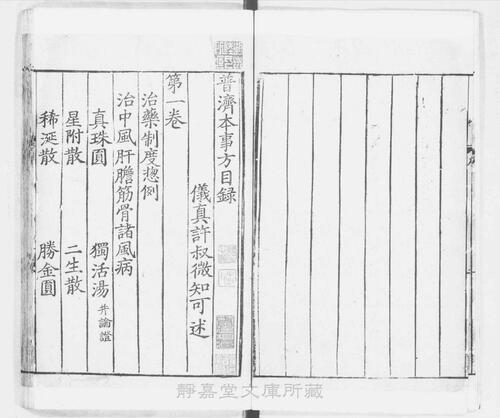 普濟本事方目録
儀真許叔微知可述
第一卷
治藥制度揔例
治中風肝膽筋骨諸風病
真珠圓　獨活湯 并論證
星附散　二生散
稀涎散　勝金圓
靜嘉堂文庫所藏